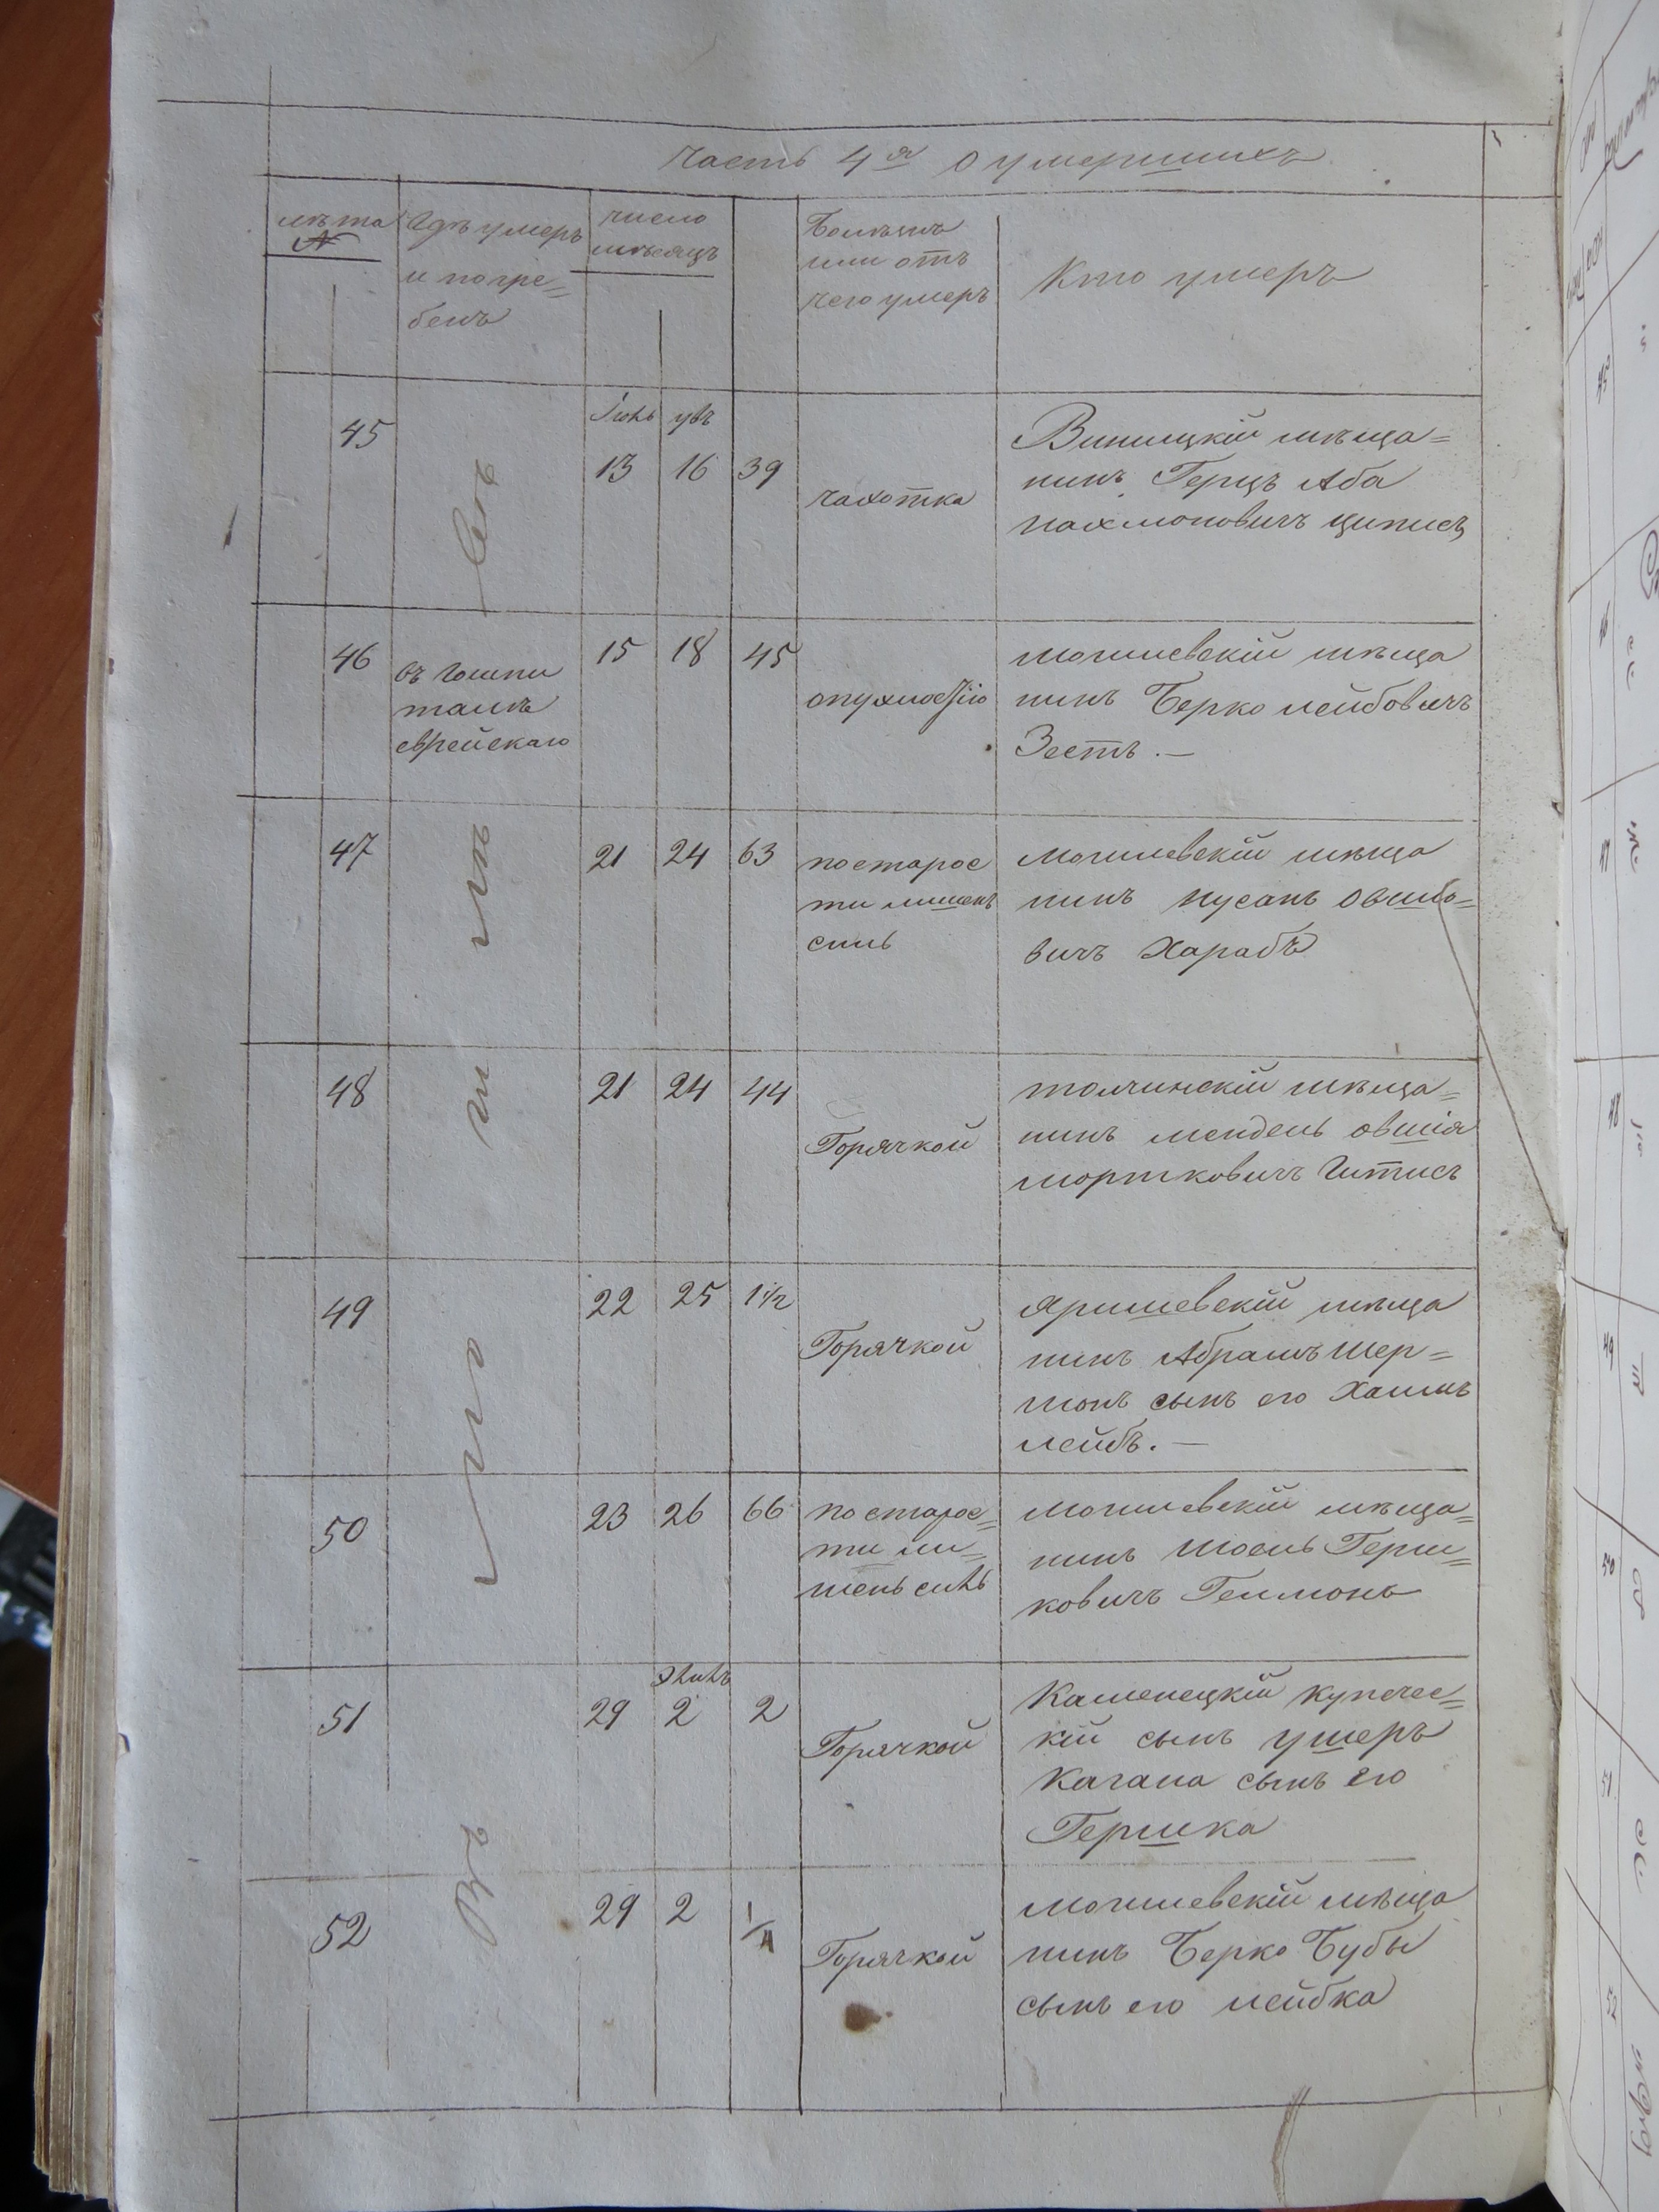 Часть 4я о умершихъ
лѣта
№
Гдѣ умеръ
и погре=
бенъ
число
мѣсяцъ
Болѣзнь
или отъ
чего умеръ
Кто умеръ
45
Іюнь
13
16
39
чахотка
Виницкій мѣща=
нинъ Герцъ Аба
Нахмоновичъ Ципись
46
въ гошпи
талѣ
еврейскаго
15
18
45
опухлостію
Могилевскій мѣща
нинъ Берко Лейбовичъ
Зестъ. —
47
21
24
63
по старос
ти лишенъ
силь
Могилевскій мѣща
нинъ Нусанъ Овшіо=
вичъ Харабъ
48
21
24
44
Горячкой
Мендель Овшія
Мортковичъ Гитисъ
49
22
25
1 1/2
Горячкой
Яришевскій мѣща
нинъ Абрамъ Шер=
монъ сынъ его Хаимъ
Лейбъ. —
50
23
26
66
по старос=
ти ли=
шенъ силь
Могилевскій мѣща=
нинъ Шоель Герш=
ковичъ
51
29
2
2
Горячкой
Каменецкій купечес=
кій сынъ Ушеръ
Кагана сынъ его
Гершка
52
29
2
1/4
Горячкой
Могилевскій мѣща
нинъ Берко Бубы
сынъ его Лейбка